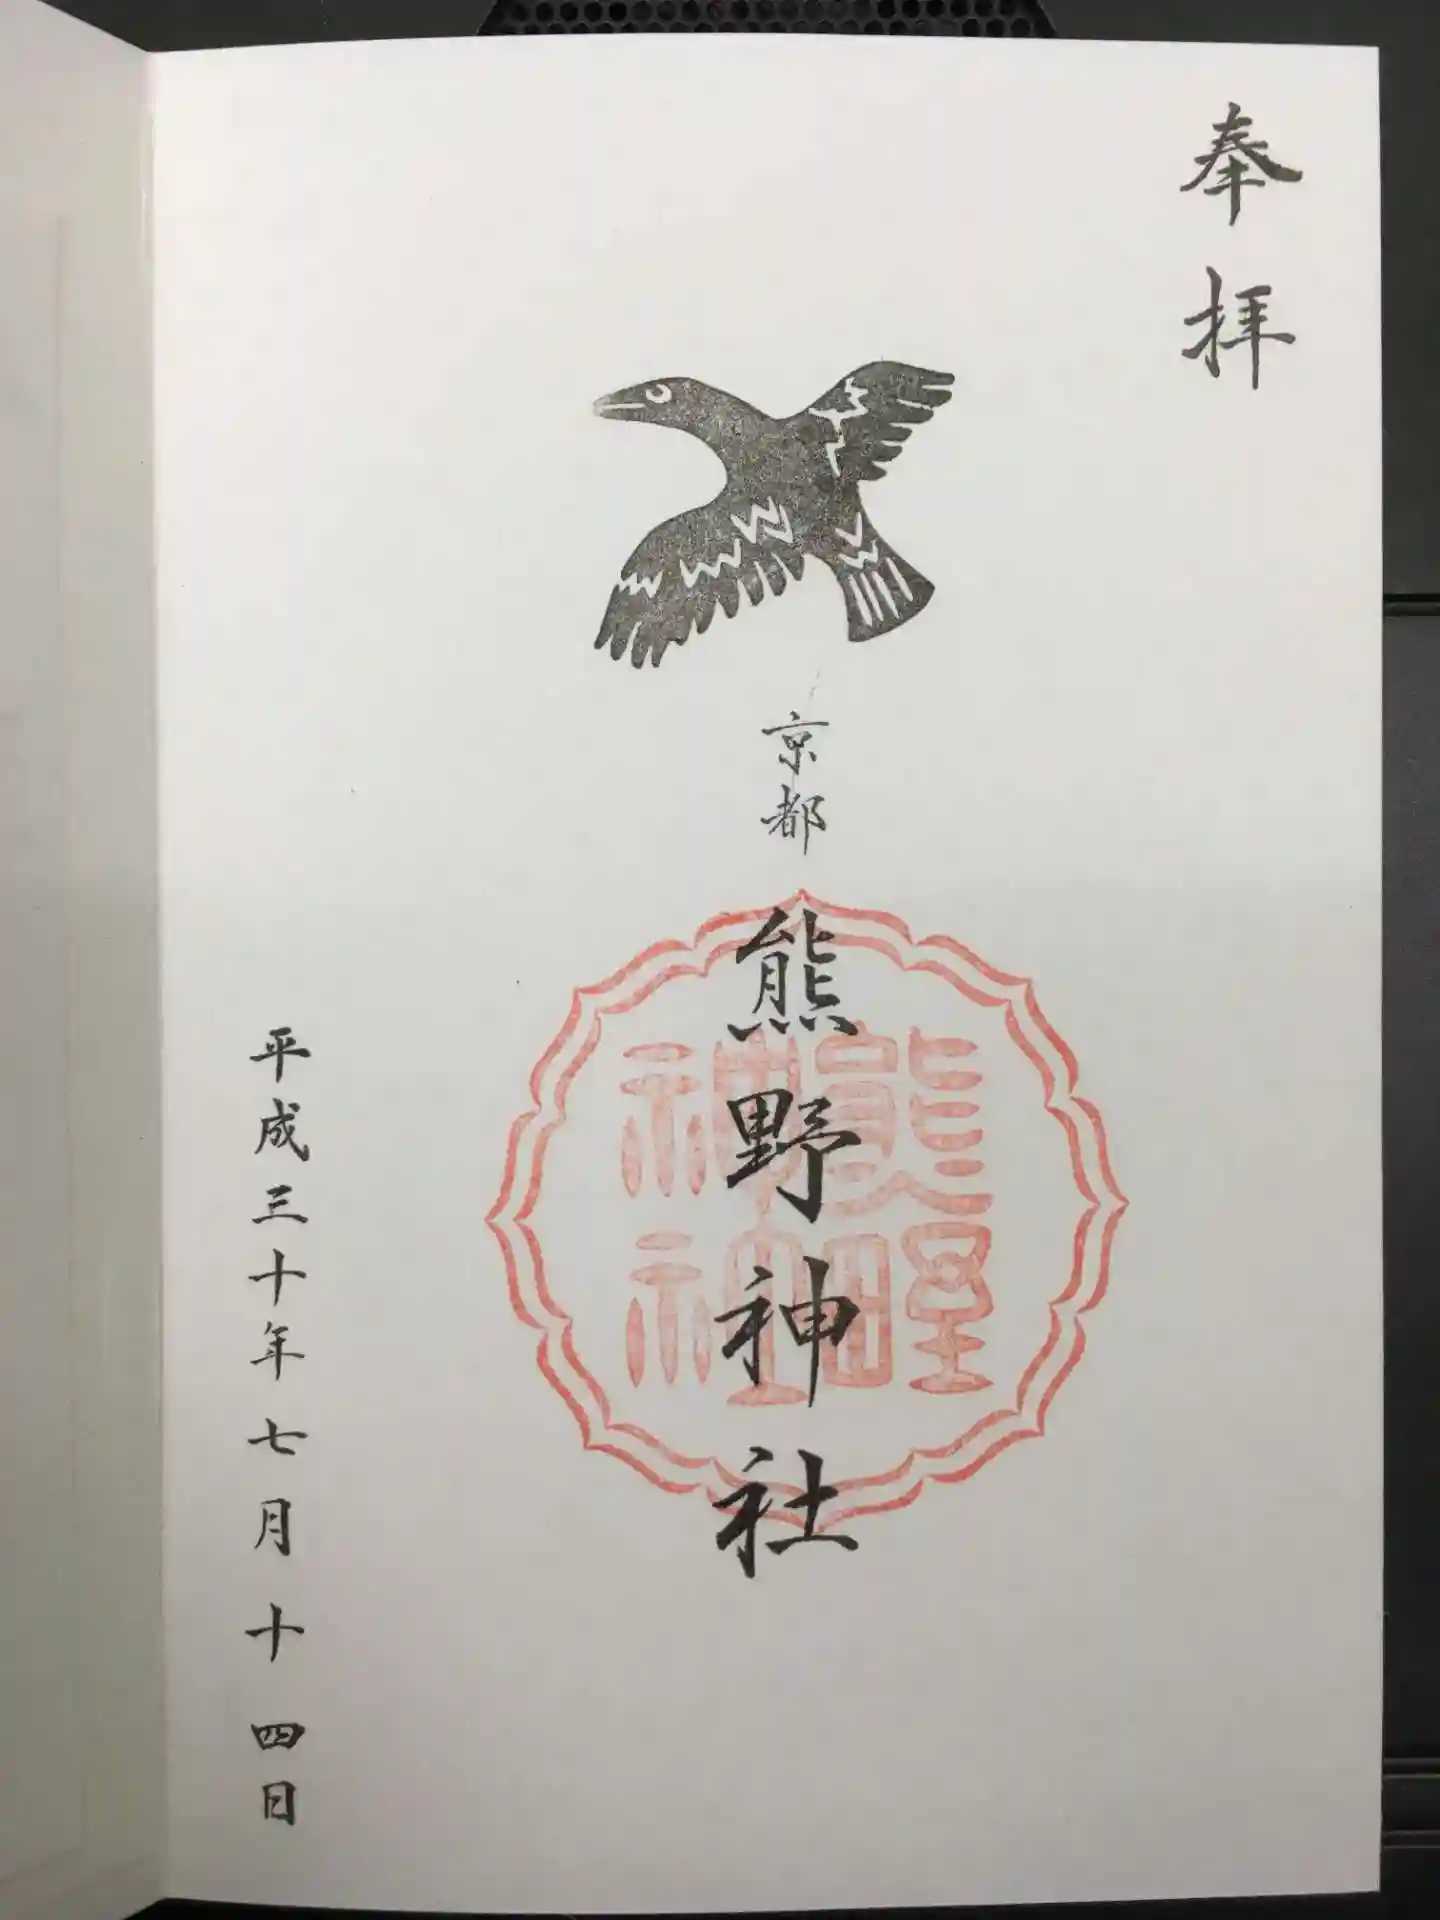 奉拝
京都
熊野神社
熊野神社
平成三十年七月十四日